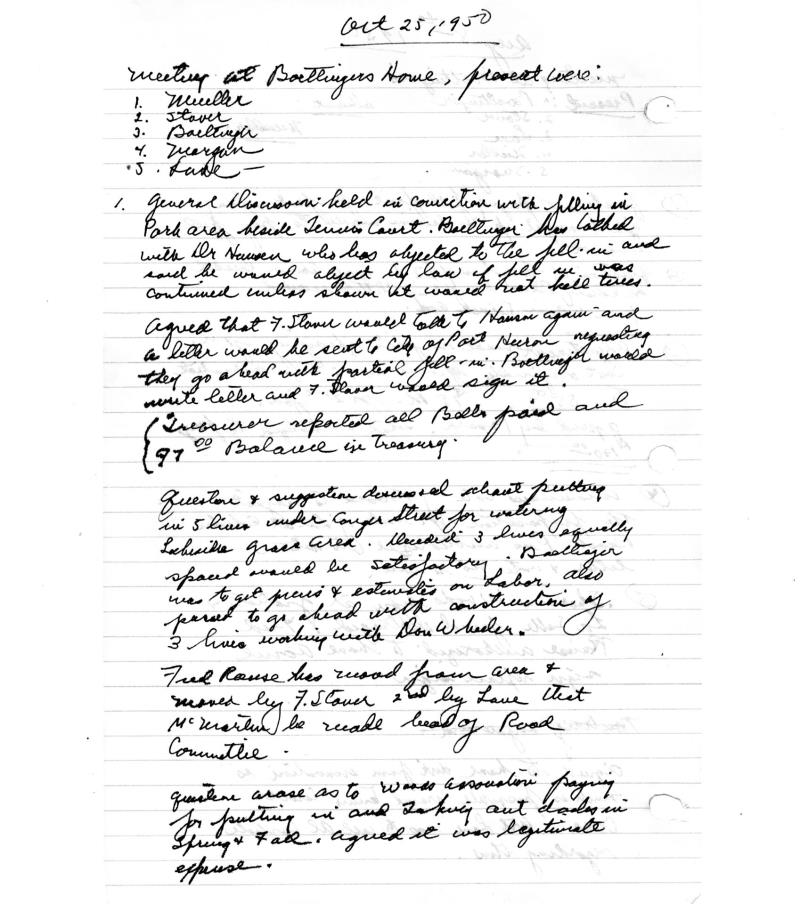 Oct 25, 1950
Meeting at Boettingers Home, present were:
1. Mueller
2. Stover
3. Boettinger
4. Morgan
5. Lane -
1. General Discussion held in conection with filling in
Park area beside Tennis Court. Boettinger has talked
with Dr Hansen who has objected to the fill-in and
said he would object by law if fill in was
continued unless shown it would not kill trees.
Agreed that F. Stover would talk to Hansen again and
a letter would be sent to City of Port Huron requesting
they go ahead with partial fill-in. Boettinger would
write letter and F. Stover would sign it.
Treasurer reported all Bills paid and
97 00 Balance in Treasury.
Question & suggestion discussed about putting
in 5 lines under Conger Street for watering
Lakeside grass area. Decided 3 lines equally
spaced would be satisfactory. Boettinger
was to get prices & estimates on Labor, also
passed to go ahead with construction of
3 lines working with Don Wheeler.
Fred Rouse has moved from area &
moved by F. Stover 2nd by Lane that
McMartin be made head of Road
Committee.
Question arose as to Woods Association paying
for putting in and taking out docks in
Spring & Fall. Agreed it was legitimate
expense.